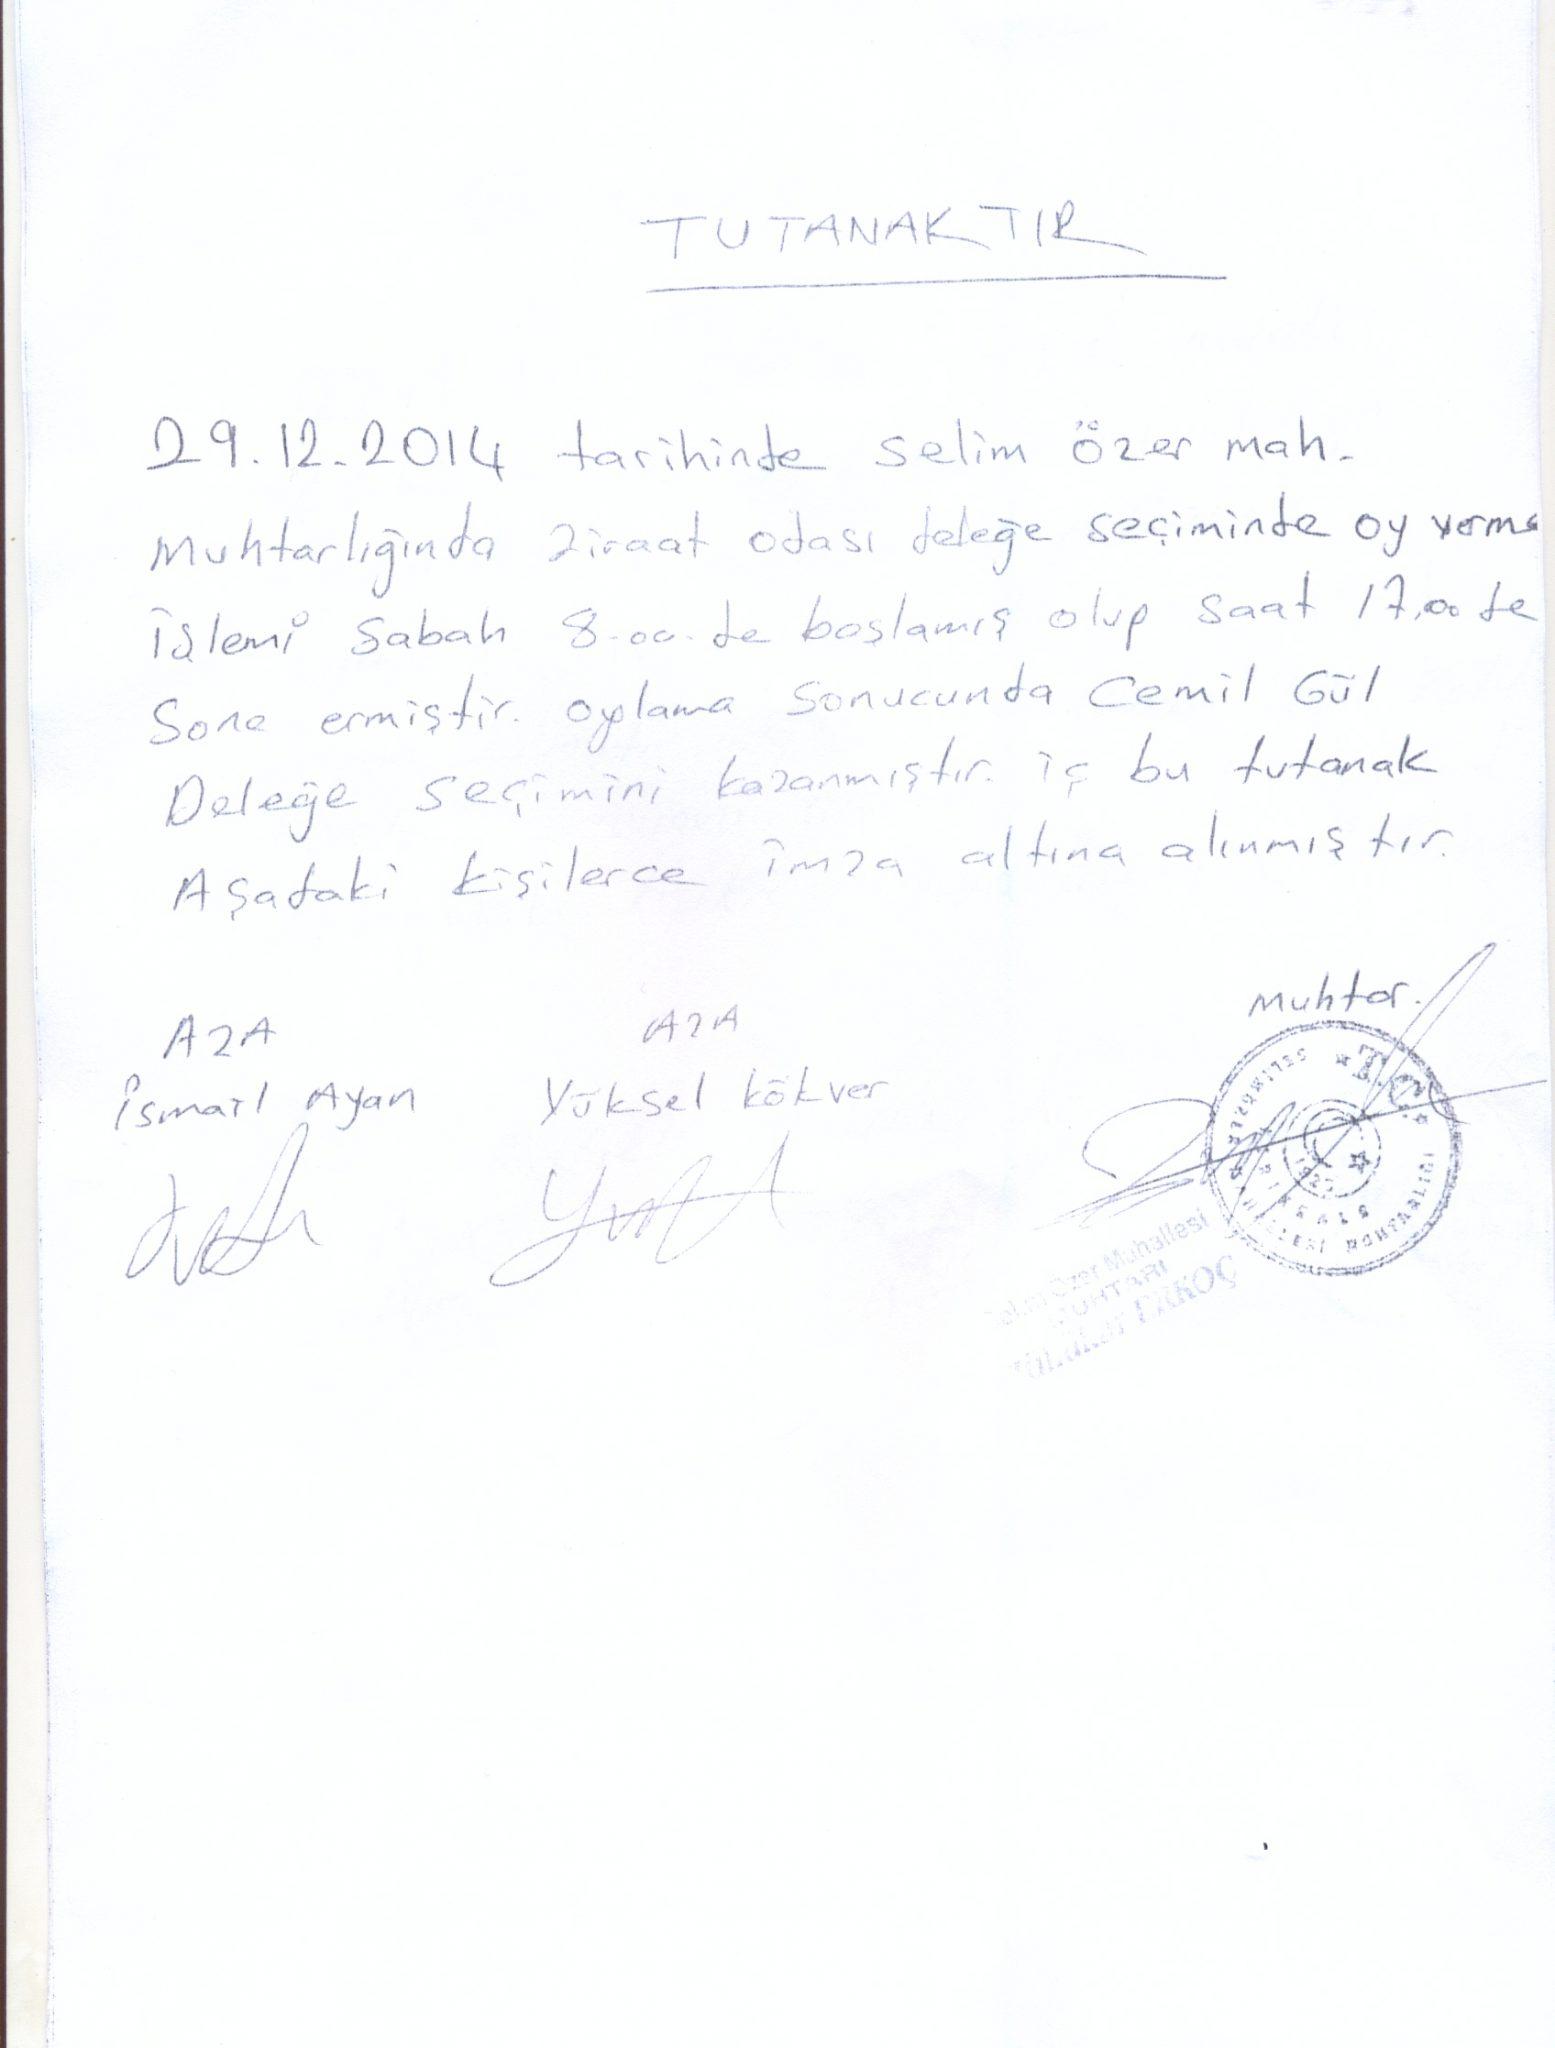 TUTANAKTIR
29.12.2014 tarihinde Selim Özer mah.
Muhtarlığında Ziraat odası deleğe seçiminde oy verme
İşlemi Sabah 8.00.de başlamış olup saat 17.00 de
Sona ermiştir. oylama Sonucunda Cemil Gül
Deleğe seçimini kazanmıştır. iç bu tutanak
Aşadaki kişilerce imza altına alınmıştır.
AZA AZA Muhtar.
İsmail Ayan Yüksel Kökver
T.C.
Özer Mahallesi
MUHTARI
ERKOÇ